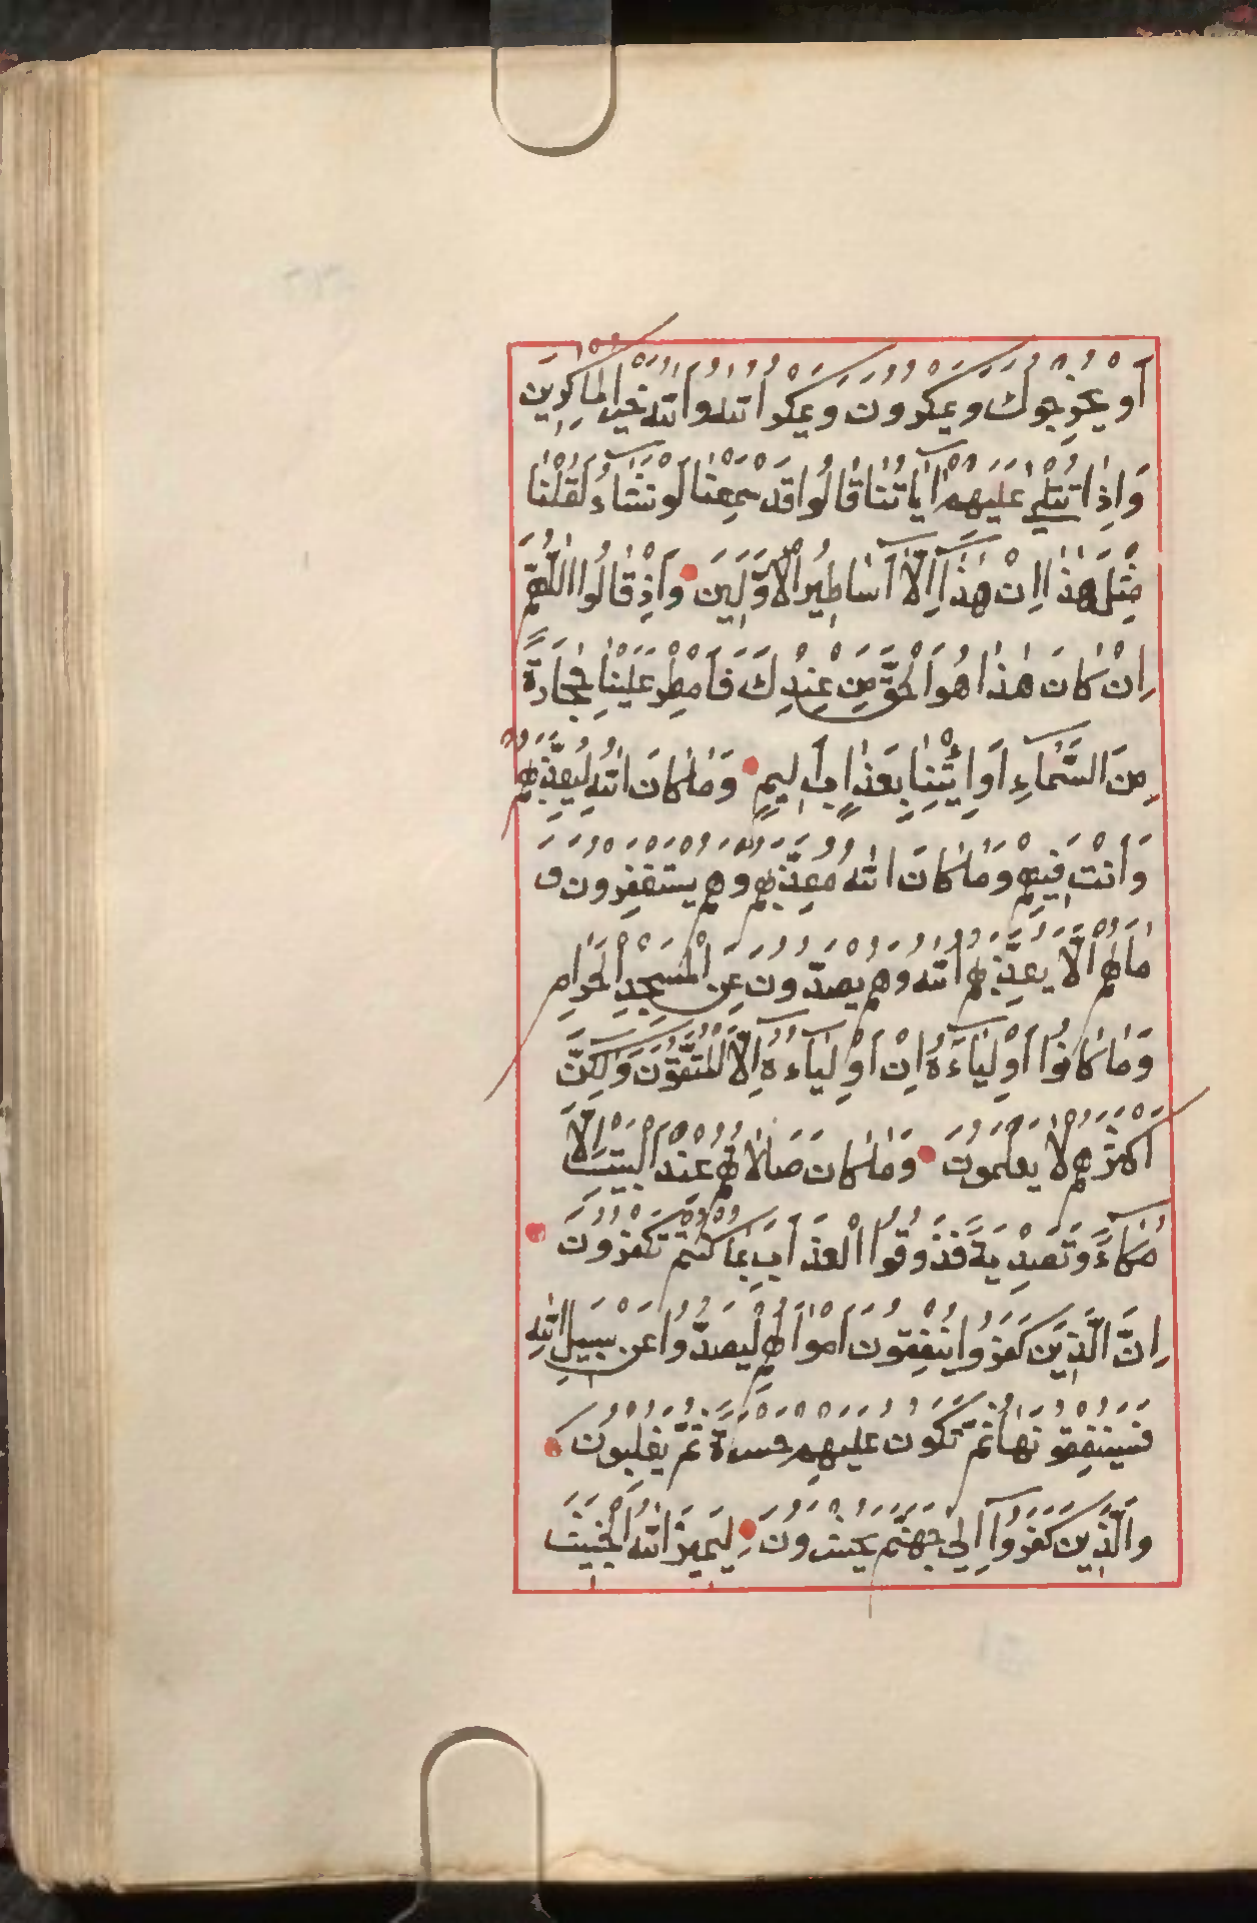 أَوْ يُخْرِجُوكَ وَيَمْكُرُونَ وَيَمْكُرُ اللهُ وَاللهُ خَيْرُ الْمَاكِرِينَ
وَإِذَا تُتْلَى عَلَيْهِمْ آيَاتُنَا قَالُوا قَدْ سَمِعْنَا لَوْ نَشَاءُ لَقُلْنَا
مِثْلَ هَذَا إِنْ هَذَا إِلَّا أَسَاطِيرُ الْأَوَّلِينَ وَإِذْ قَالُوا اللَّهُمَّ
إِنْ كَانَ هَذَا هُوَ الْحَقَّ مِنْ عِنْدِكَ فَأَمْطِرْ عَلَيْنَا حِجَارَةً
مِنَ السَّمَاءِ أَوِ ائْتِنَا بِعَذَابٍ أَلِيمٍ وَمَا كَانَ اللهُ لِيُعَذِّبَهُمْ
وَأَنْتَ فِيهِمْ وَمَا كَانَ اللهُ مُعَذِّبَهُمْ وَهُمْ يَسْتَغْفِرُونَ وَ
مَا لَهُمْ أَلَّا يُعَذِّبَهُمُ اللهُ وَهُمْ يَصُدُّونَ عَنِ الْمَسْجِدِ الْحَرَامِ
وَمَا كَانُوا أَوْلِيَاءَهُ إِنْ أَوْلِيَاءُهُ إِلَّا الْمُتَّقُونَ وَلَكِنَّ
أَكْثَرَهُمْ لَا يَعْلَمُونَ وَمَا كَانَ صَلَاتُهُمْ عِنْدَ الْبَيْتِ إِلَّا
مُكَاءً وَتَصْدِيَةً فَذُوقُوا الْعَذَابَ بِمَا كُنْتُمْ تَكْفُرُونَ
إِنَّ الَّذِينَ كَفَرُوا يُنْفِقُونَ أَمْوَالَهُمْ لِيَصُدُّوا عَنْ سَبِيلِ اللهِ
فَسَيُنْفِقُونَهَا ثُمَّ تَكُونُ عَلَيْهِمْ حَسْرَةً ثُمَّ يُغْلَبُونَ
وَالَّذِينَ كَفَرُوا إِلَى جَهَنَّمَ يُحْشَرُونَ لِيَمِيزَ اللهُ الْخَبِيثَ